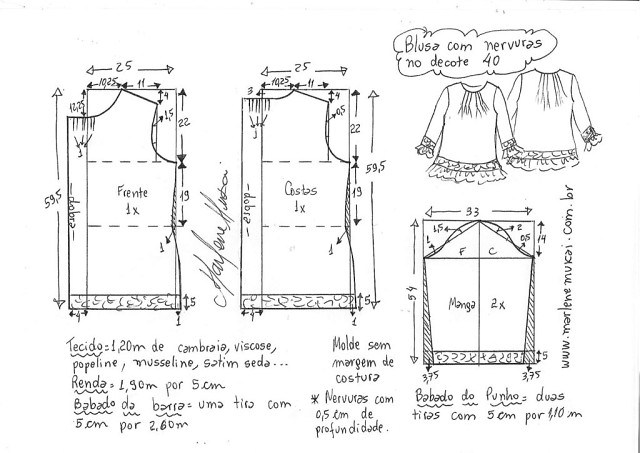 Blusa com nervuras
no decote 40
25
10,25 11
12,25
4
1,5
22
1
59,5
Frente
1x
dobra
19
1
5
4
1
Marlene Mukai
25
10,25 11
3
4
0,5
22
1
59,5
Costas
1x
dobra
19
1
5
4
1
33
1,5
2
1
0,5
14
F C
54
Manga 2x
5
3,75 3,75
www.marlenemukai.com.br
Tecido=1,20m de cambraia, viscose,
popeline, musseline, satim seda...
Renda= 1,90m por 5cm
Babado da barra= uma tira com
5cm por 2,60m
Molde sem
margem de
costura
* Nervuras com
0,5cm de
profundidade.
Babado do Punho= duas
tiras com 5cm por 1,10m